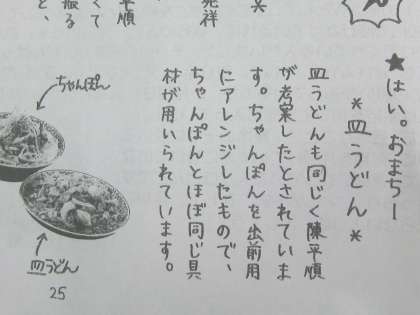 ★はい。おまちー
＊皿うどん＊
皿うどんも同じく陳平順
が考案したとされていま
す。ちゃんぽんを出前用
にアレンジしたもので、
ちゃんぽんとほぼ同じ具
材が用いられています。
＊
発祥
平順
くて
振る
ど、
ちゃんぽん
皿うどん
25